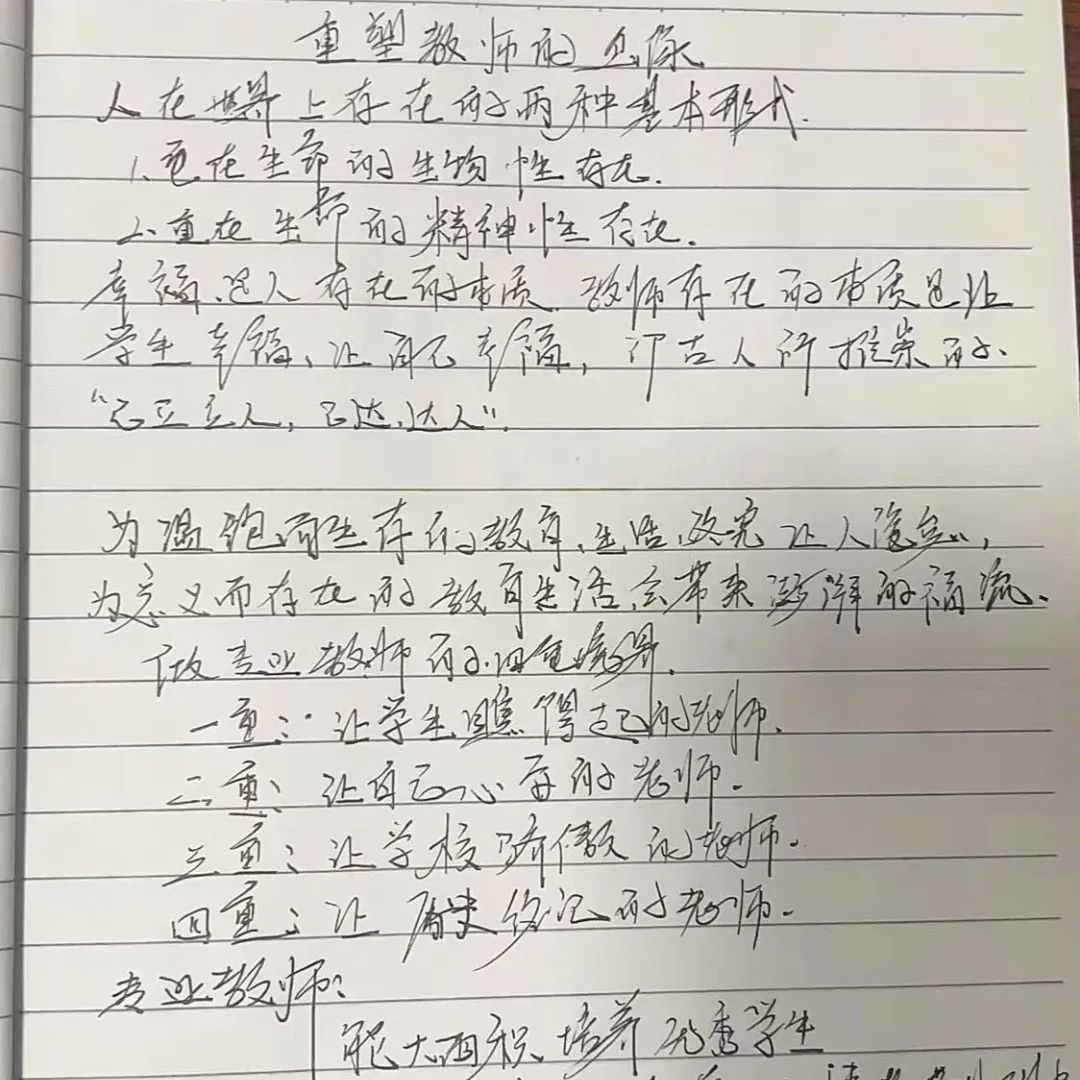 重塑教师的
人在世界上存在的两种基本形式.
1、重在生命的生物性存在.
2、重在生命的精神性存在.
幸福,是人存在的本质.教师存在的本质是让
学生幸福、让自己幸福,即古人所推崇的
“己立立人,己达达人”.
为温饱而生存的教育生活,
为意义而存在的教育生活,会带来澎湃的福流.
做专业教师的四重境界.
一重:让学生瞧得起的老师.
二重:让自己心安的老师.
三重:让学校骄傲的老师.
四重:让历史铭记的老师.
专业教师:
能大面积培养优秀学生